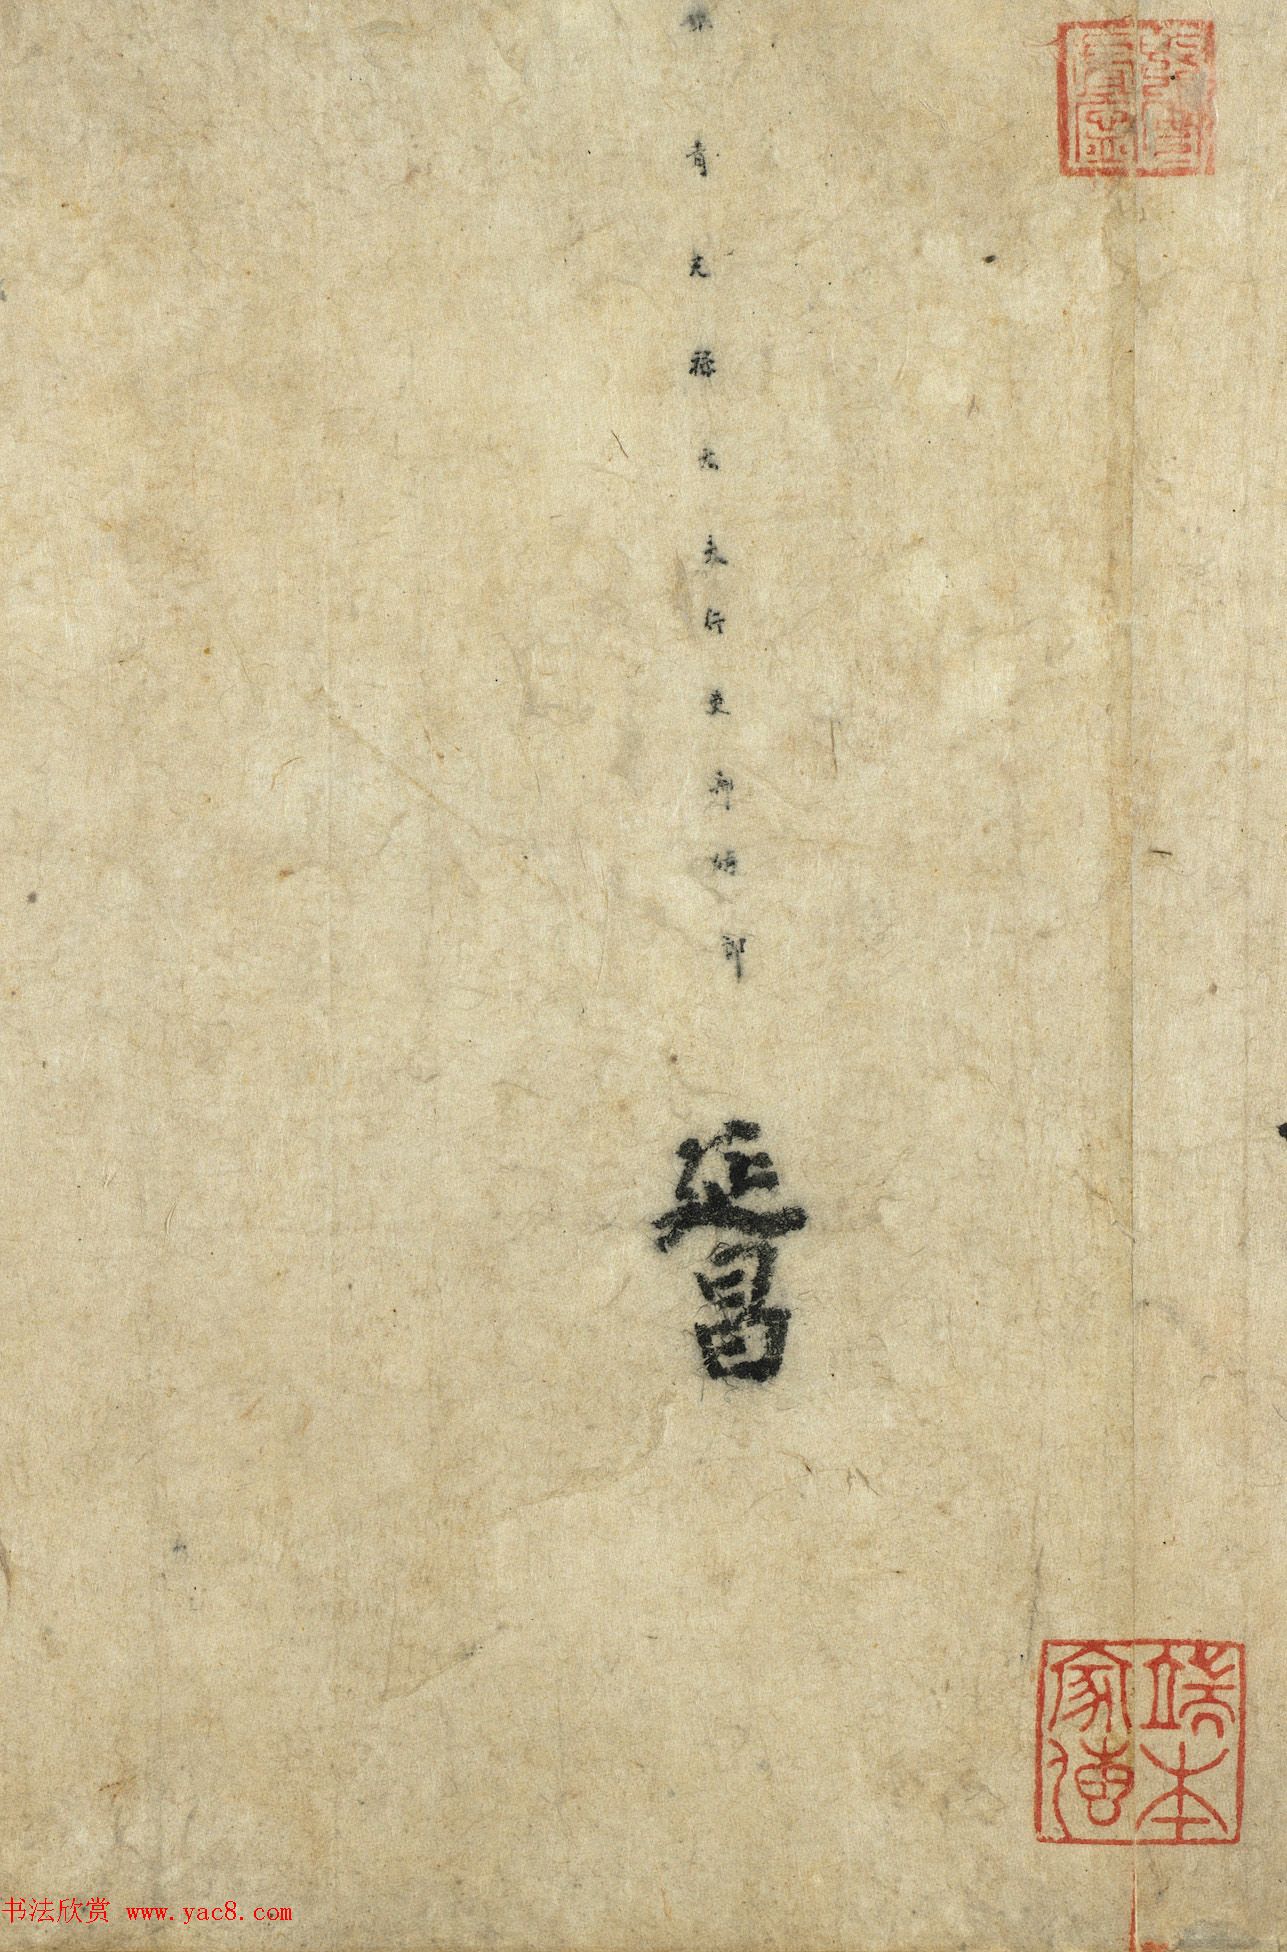 銀青光祿大夫行吏部侍郎
延昌
端本
家傳
书法欣赏 www.yac8.com